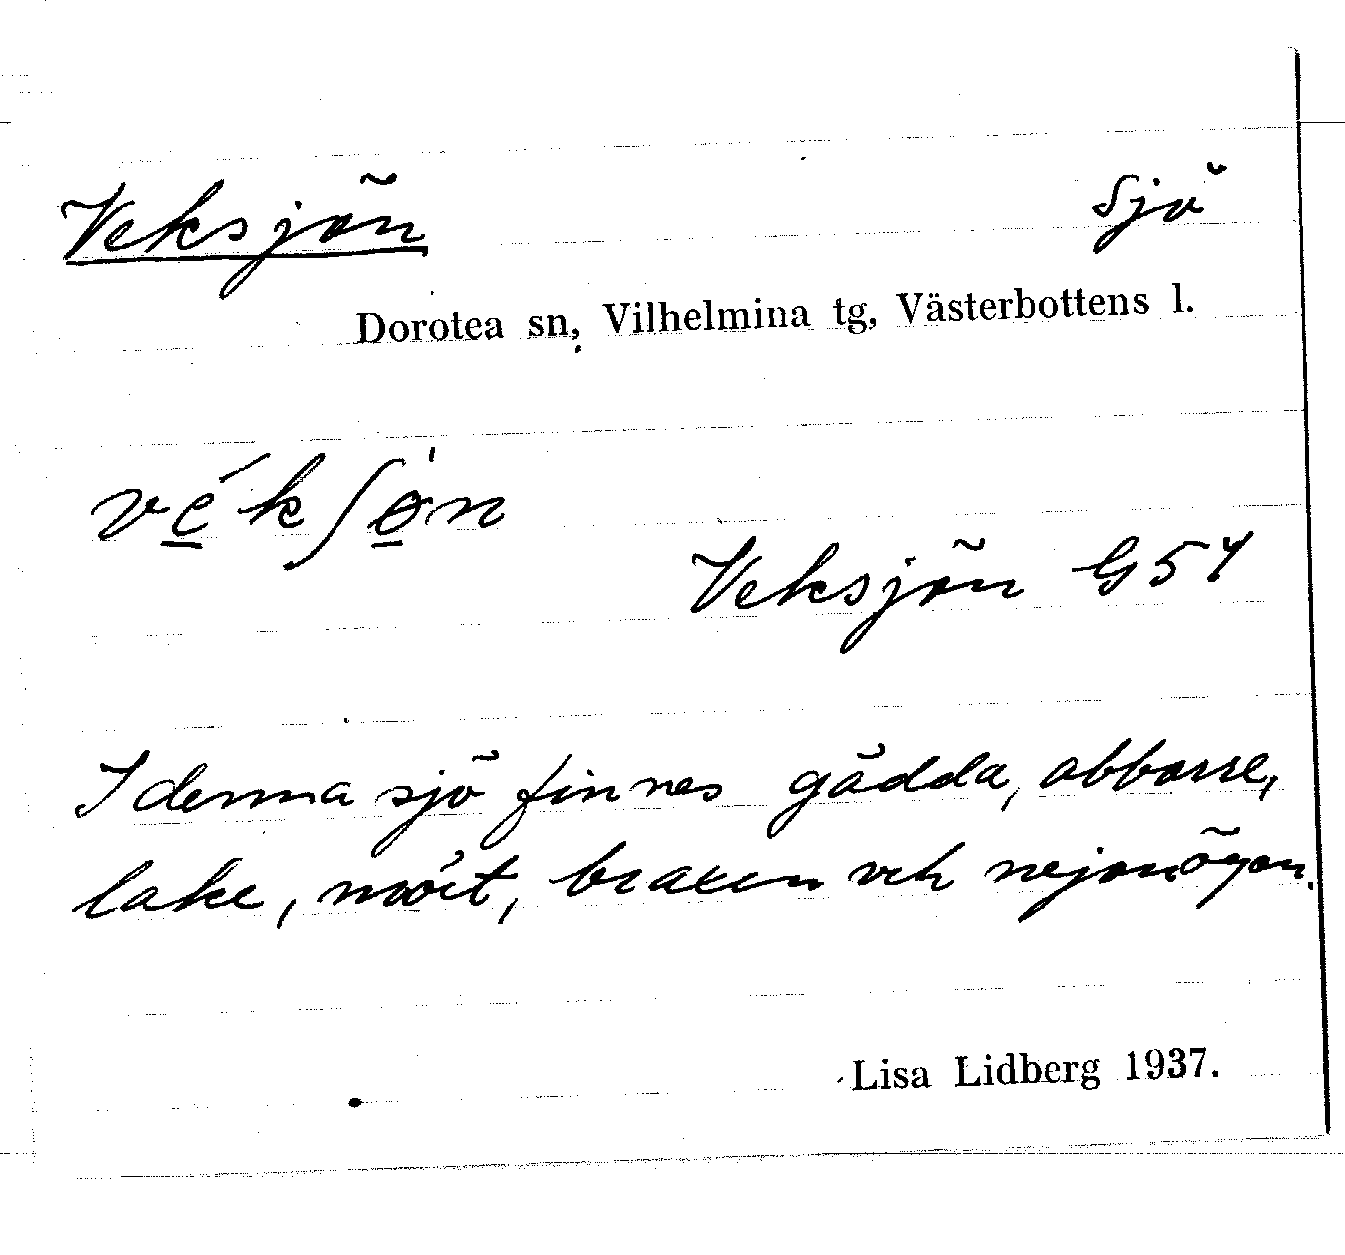 Veksjön Sjö
Dorotea sn, Vilhelmina tg, Västerbottens l.
vé̱kʃø̱n
Veksjön G 54
I denna sjö finnes gädda, abborre,
lake, mört, braxen och nejonögon.
Lisa Lidberg 1937.